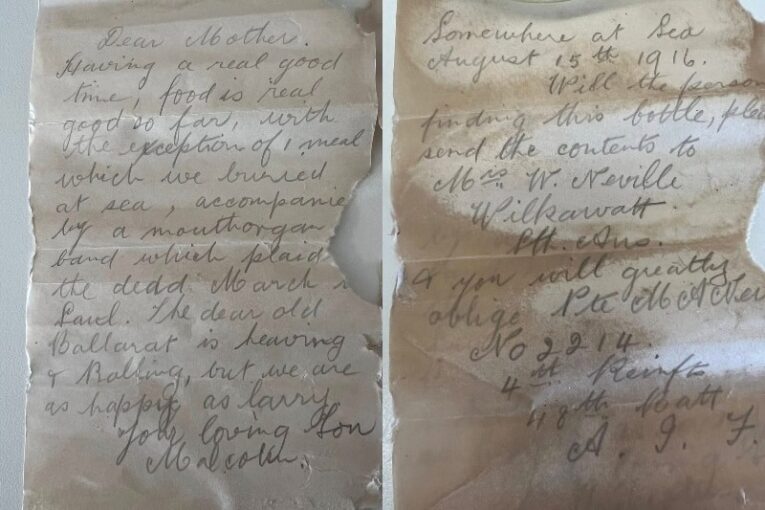 Dear Mother.
Having a real good
time, food is real
good so far, with
the exception of 1 meal
which we buried
at sea, accompanie
by a mouthorgan
band which plaid
the dedd March i
Saul. The dear old
Ballarat is heaving
& Rolling, but we are
as happy as larry
Your loving Son
Malcolm.
Somewhere at Sea
August 15th 1916.
Will the person
finding this bottle, plea
send the contents to
Mrs W. Neville
Wilkawatt.
Sth. Aus.
& you will greatly
oblige Pte M A Nev
No 2214.
4th Reinfts
48th Batt
A. I. F.